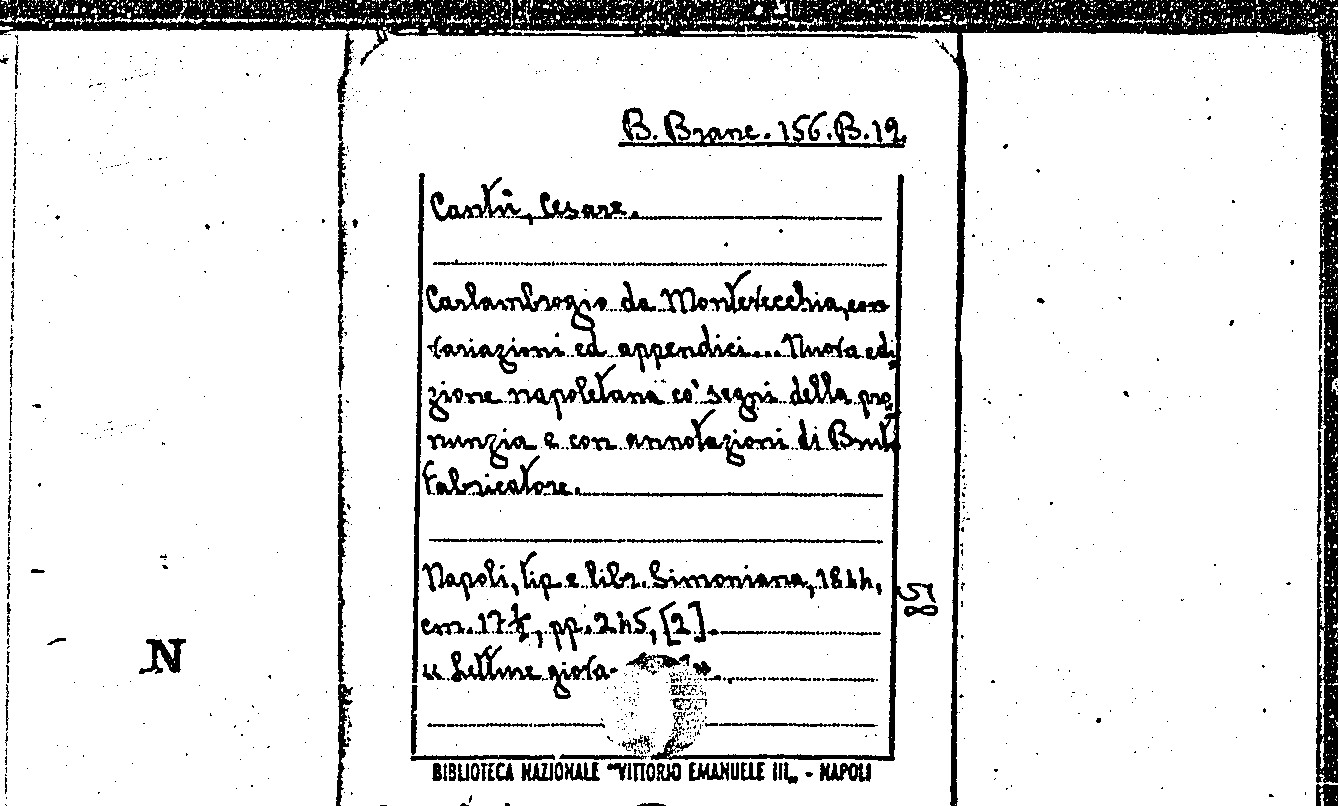 B. Branc. 156. B. 19.
Cantù, Cesare.
Carlambrogio da Montevecchia, con
variazioni ed appendici... Nuova edi
zione napoletana co' segni della pro
nunzia e con annotazioni di Bruto
Fabricatore.
Napoli, tip e libr. Simoniana, 1844,
58
cm. 17½, pp. 245, [2].
« Letture giova- ».
N
BIBLIOTECA NAZIONALE "VITTORIO EMANUELE III„ - NAPOLI